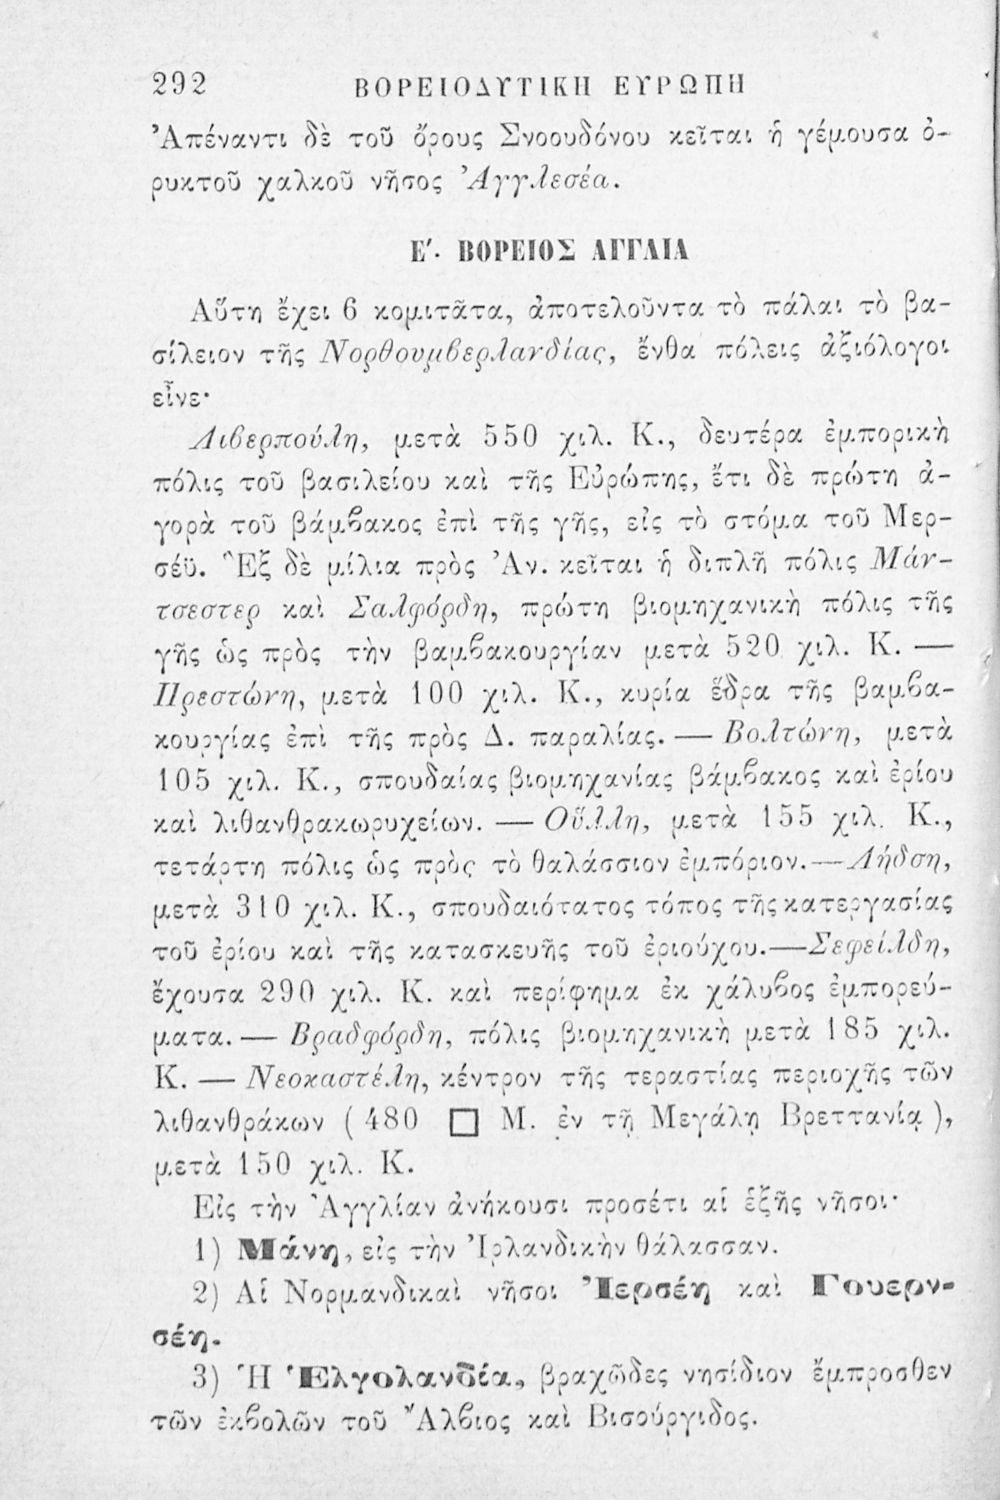 292 ΒΟΡΕΙΟΔΥΤΙΚΗ ΕΥΡΩΠΗ
Ἀπέναντι δὲ τοῦ ὄρους Σνοουδόνου κεῖται ἡ γέμουσα ὀ-
ρυκτοῦ χαλκοῦ νῆσος Ἀγγλεσέα.
Ε΄. ΒΟΡΕΙΟΣ ΑΓΓΛΙΑ
Αὕτη ἔχει 6 κομιτᾶτα, ἀποτελοῦντα τὸ πάλαι τὸ βα-
σίλειον τῆς Νορθουμβερλανδίας, ἔνθα πόλεις ἀξιόλογοι
εἶνε·
Λιβερπούλη, μετὰ 550 χιλ. Κ., δευτέρα ἐμπορικὴ
πόλις τοῦ βασιλείου καὶ τῆς Εὐρώπης, ἔτι δὲ πρώτη ἀ-
γορὰ τοῦ βάμβακος ἐπὶ τῆς γῆς, εἰς τὸ στόμα τοῦ Μερ-
σέϋ. Ἓξ δὲ μίλια πρὸς Ἀν. κεῖται ἡ διπλῆ πόλις Μάν-
τσεστερ καὶ Σαλφόρδη, πρώτη βιομηχανικὴ πόλις τῆς
γῆς ὡς πρὸς τὴν βαμβακουργίαν μετὰ 520 χιλ. Κ. —
Πρεστώνη, μετὰ 100 χιλ. Κ., κυρία ἕδρα τῆς βαμβα-
κουργίας ἐπὶ τῆς πρὸς Δ. παραλίας. — Βολτώνη, μετὰ
105 χιλ. Κ., σπουδαίας βιομηχανίας βάμβακος καὶ ἐρίου
καὶ λιθανθρακωρυχείων. — Οὔλλη, μετὰ 155 χιλ. Κ.,
τετάρτη πόλις ὡς πρὸς τὸ θαλάσσιον ἐμπόριον. — Λήδση,
μετὰ 310 χιλ. Κ., σπουδαιότατος τόπος τῆς κατεργασίας
τοῦ ἐρίου καὶ τῆς κατασκευῆς τοῦ ἐριούχου. — Σεφείλδη,
ἔχουσα 290 χιλ. Κ. καὶ περίφημα ἐκ χάλυβος ἐμπορεύ-
ματα. — Βραδφόρδη, πόλις βιομηχανικὴ μετὰ 185 χιλ.
Κ. — Νεοκαστέλη, κέντρον τῆς τεραστίας περιοχῆς τῶν
λιθανθράκων ( 480 □ Μ. ἐν τῇ Μεγάλῃ Βρεττανίᾳ ),
μετὰ 150 χιλ. Κ.
Εἰς τὴν Ἀγγλίαν ἀνήκουσι προσέτι αἱ ἑξῆς νῆσοι·
1) Μάνη, εἰς τὴν Ἰρλανδικὴν θάλασσαν.
2) Αἱ Νορμανδικαὶ νῆσοι Ἰερσέη καὶ Γουερν-
σέη.
3) Ἡ Ἑλγολανδία, βραχῶδες νησίδιον ἔμπροσθεν
τῶν ἐκβολῶν τοῦ Ἄλβιος καὶ Βισούργιδος.